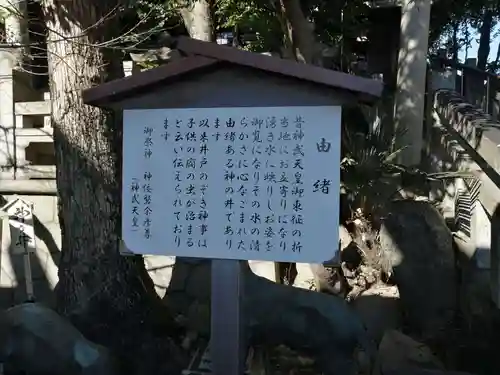 由緒
昔神武天皇御東征の折
当地にお立寄りになり
湧き水に映りしお姿を
御覧になりその水の清
らかさに心なごまれた
由緒ある神の井であり
ます
以来井戸のぞき神事は
子供の疳の虫が治まる
と云い伝えられており
ます
御祭神 神倭磐余彦尊
（神武天皇）